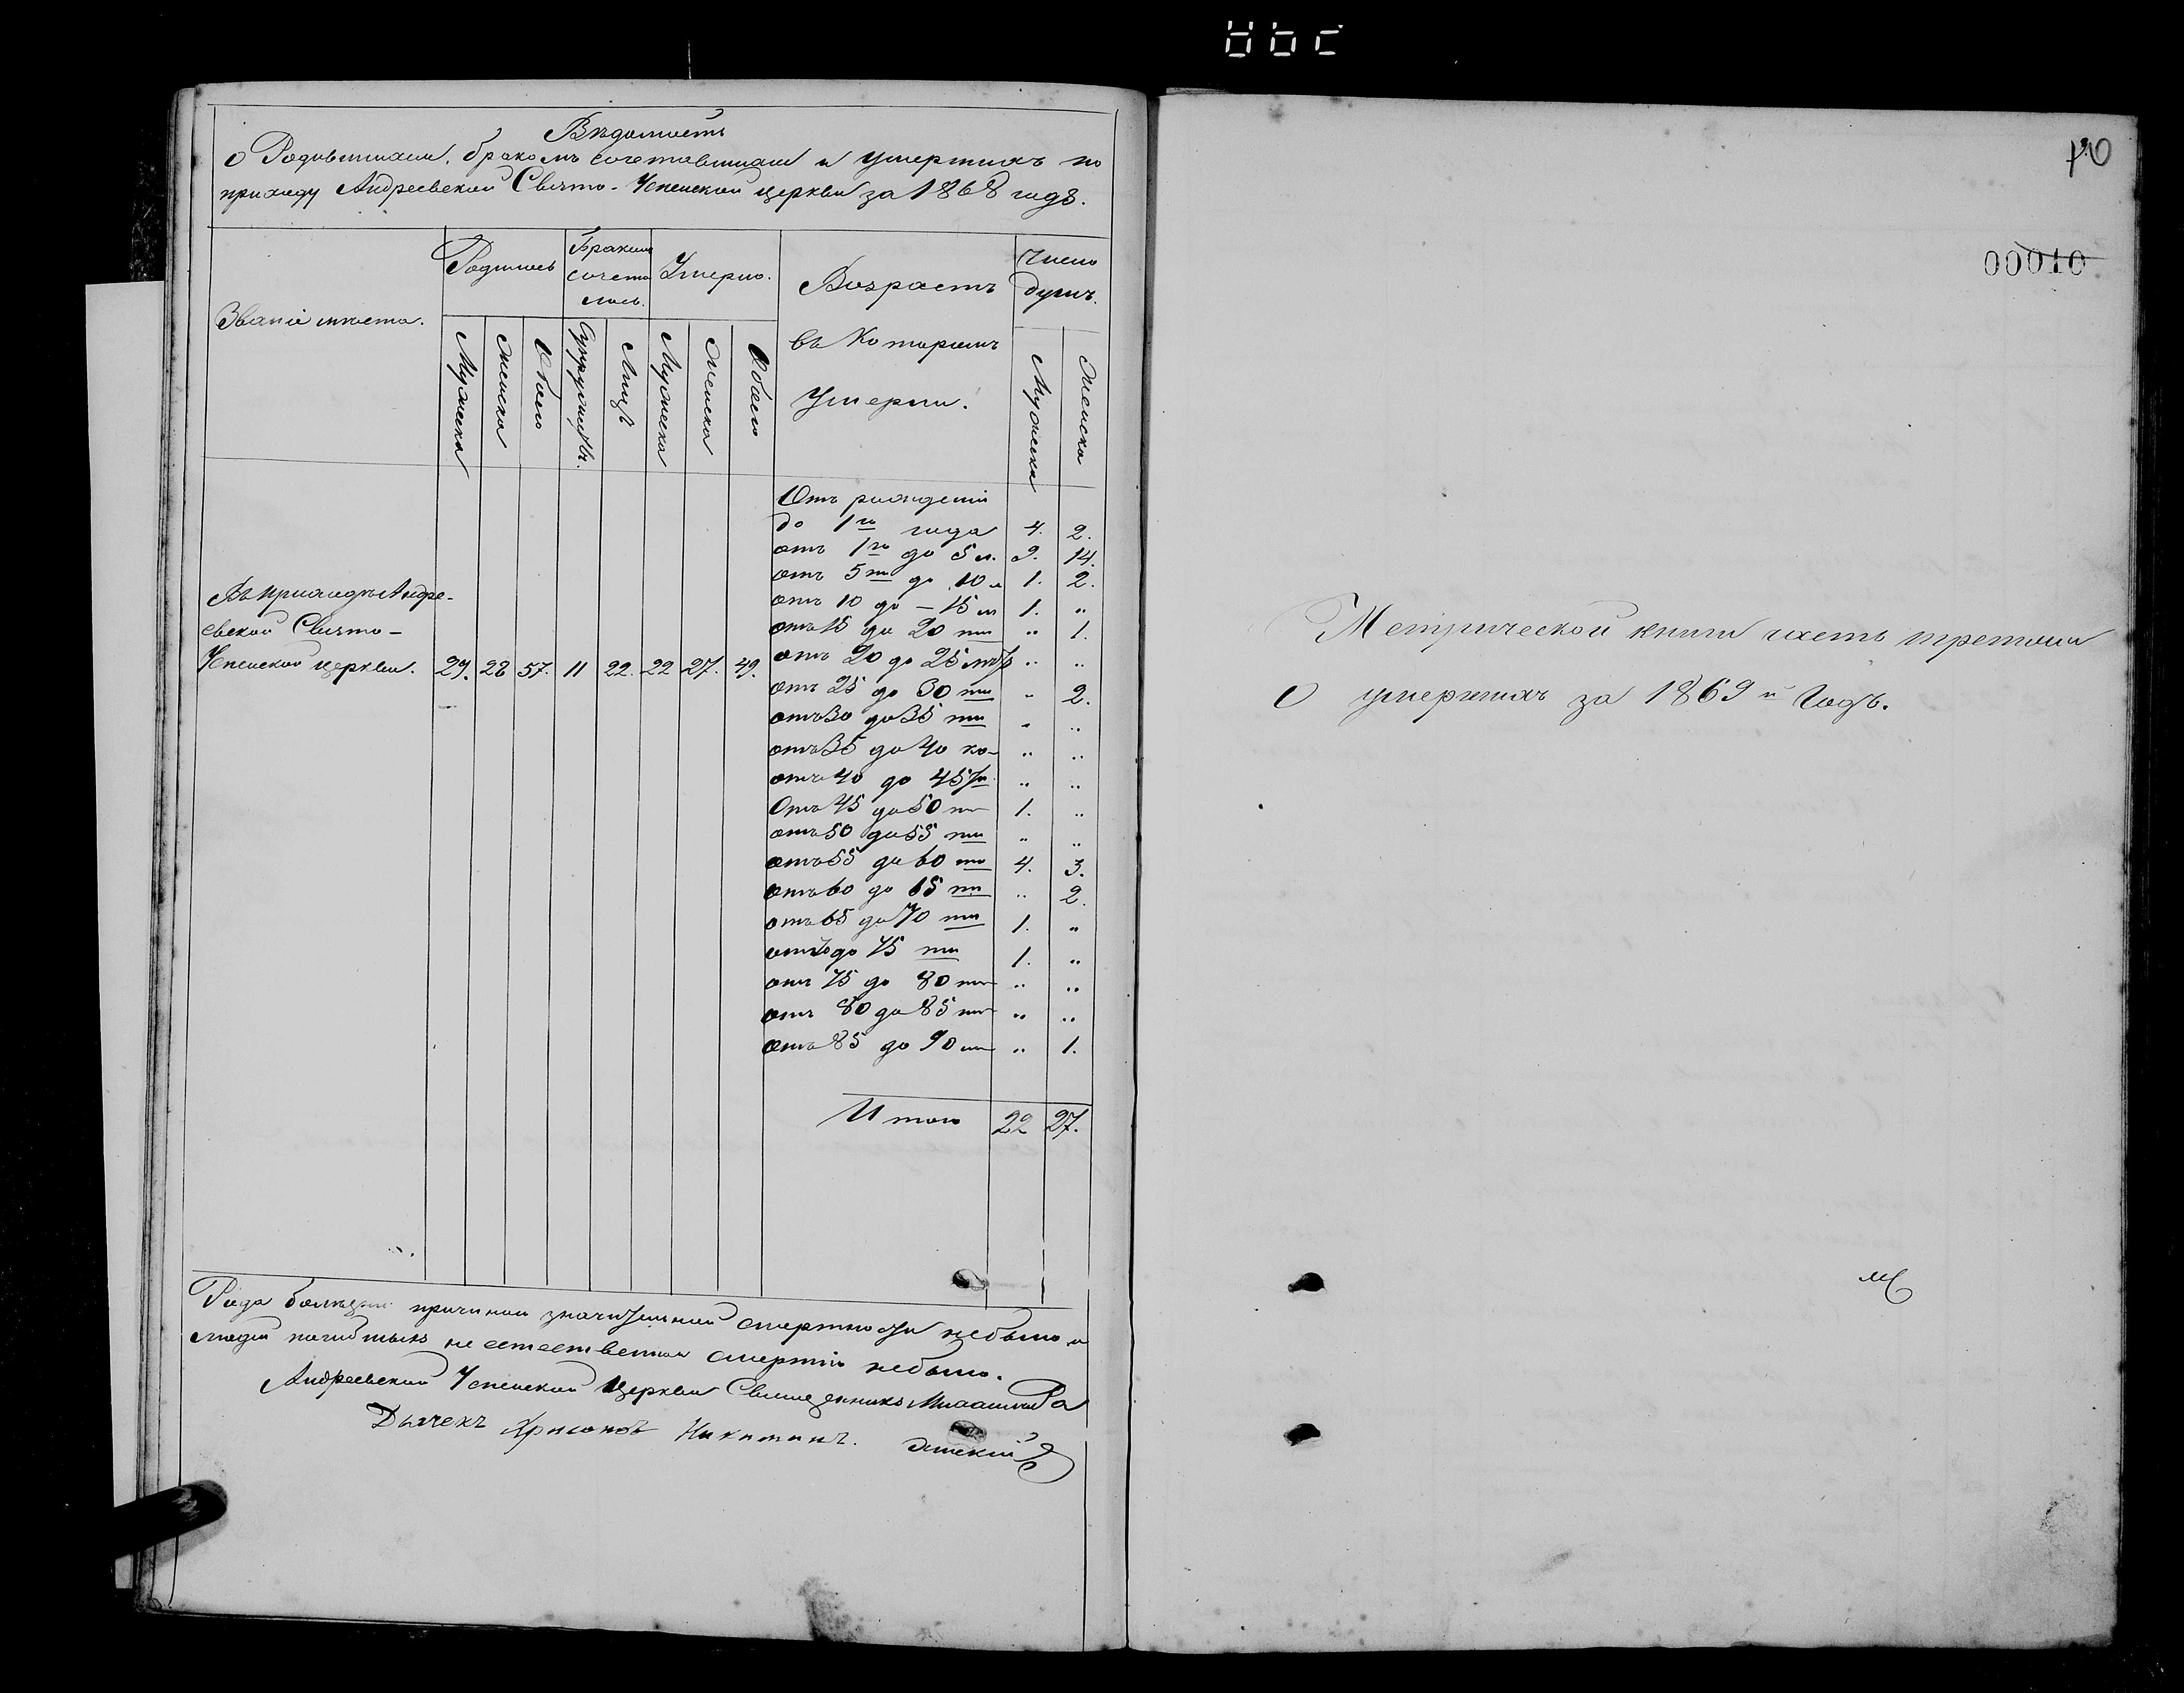 Вѣдомость
о Родившихся, бракомъ сочетавшихся и умершихъ по
приходу Андреевской Свято-Успенской церкви за 1868 годъ.
Званіе мѣста.
Родилось
Бракомъ
сочета
лось.
Умерло.
Возрастъ
въ которомъ
умерли.
Число
душъ.
Мужеска
Женска
Обоего
Супружествъ.
Лицъ
Мужеска
Женска
Обоего
Мужеска
Женска
Отъ рожденія
до 1го года 4. 2.
отъ 1го до 5 л. 9. 14.
отъ 5ти до 10 л 1. 2.
отъ 10 до – 15 ти 1. „
отъ 15 до 20 ти „ 1.
отъ 20 до 25 ть „ „
отъ 25 до 30 ти „ 2.
отъ 30 до 35 ти „ „
отъ 35 до 40 ко „ „
отъ 40 до 45 ти „ „
Отъ 45 до 50 ти 1. „
отъ 50 до 55 ти „ „
отъ 55 до 60 ти 4. 3.
отъ 60 до 65 ти „ 2.
отъ 65 до 70 ти 1. „
отъ 70 до 75 ти 1. „
отъ 75 до 80 ти „ „
отъ 80 до 85 ти „ „
отъ 85 до 90 ти „ 1.
Въ приходѣ Андре-
евской Свято-
Успенской церкви. 29. 28 57. 11 22. 22 27. 49.
Итого 22 27.
Рода болѣзни причиной значительной смертности небыло и
людей погибшыхъ не естественной смертію небыло.
Андреевской Успенской Церкви Священникъ
Дьячекъ Никитинъ.
00010
Метрической книги часть третья
О умершихъ за 1869 й Годъ.